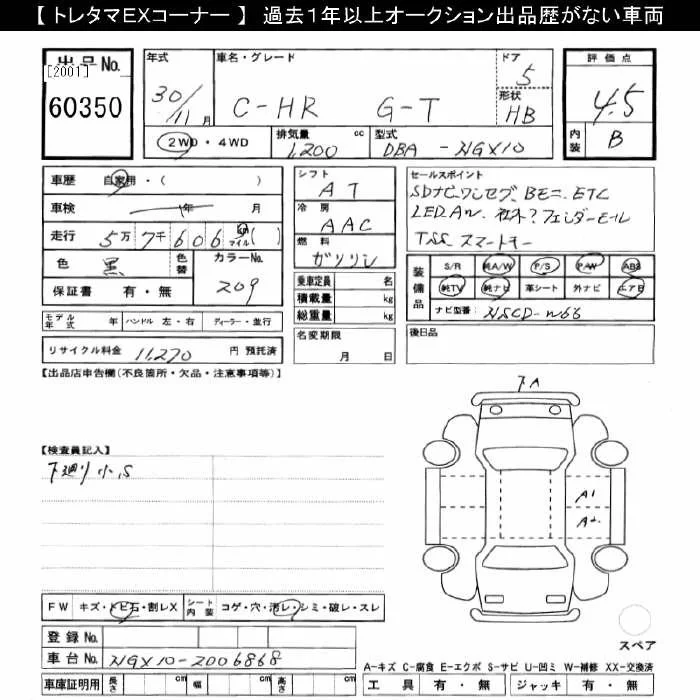 【トレタマEXコーナー】 過去１年以上オークション出品歴がない車両
出品No.
[2001]
60350
年式
30/11月
車名・グレード
C-HR G-T
ドア
5
形状
HB
評価点
4.5
内装
B
2WD・4WD
排気量 cc
1,200
型式
DBA - NGX10
車歴 自家用・( )
車検 年 月
走行 5万7千606 km マイル ( )
色 黒
色替
カラーNo.
209
保証書 有・無
シフト
AT
冷房
AAC
燃料
ガソリン
乗車定員 名
積載量 kg
総重量 kg
セールスポイント
SDナビ.ワンセグ. Bモニ. ETC
LED.AW. 社外?フェンダーモール
TSS. スマートキー
装備品
S/R 純A/W P/S P/W ABS
純TV 純ナビ 革シート 外ナビ エアB
ナビ型番: NSCD-W66
モデル年式 年 ハンドル 左・右 ディーラー・並行
名変期限
月 日
後日品
リサイクル料金 11,270 円 預託済
【出品店申告欄(不良箇所・欠品・注意事項等)】
下A
【検査員記入】
下廻り小S
A1
A2
FW キズ・トビ石・割レX シート内装 コゲ・穴・汚レ・シミ・破レ・スレ
登録 No.
車台 No. NGX10-2006868
スペア
A-キズ C-腐食 E-エクボ S-サビ U-凹ミ W-補修 XX-交換済
車庫証明用 長さ cm 幅 cm 高さ cm
工具 有・無 ジャッキ 有・無